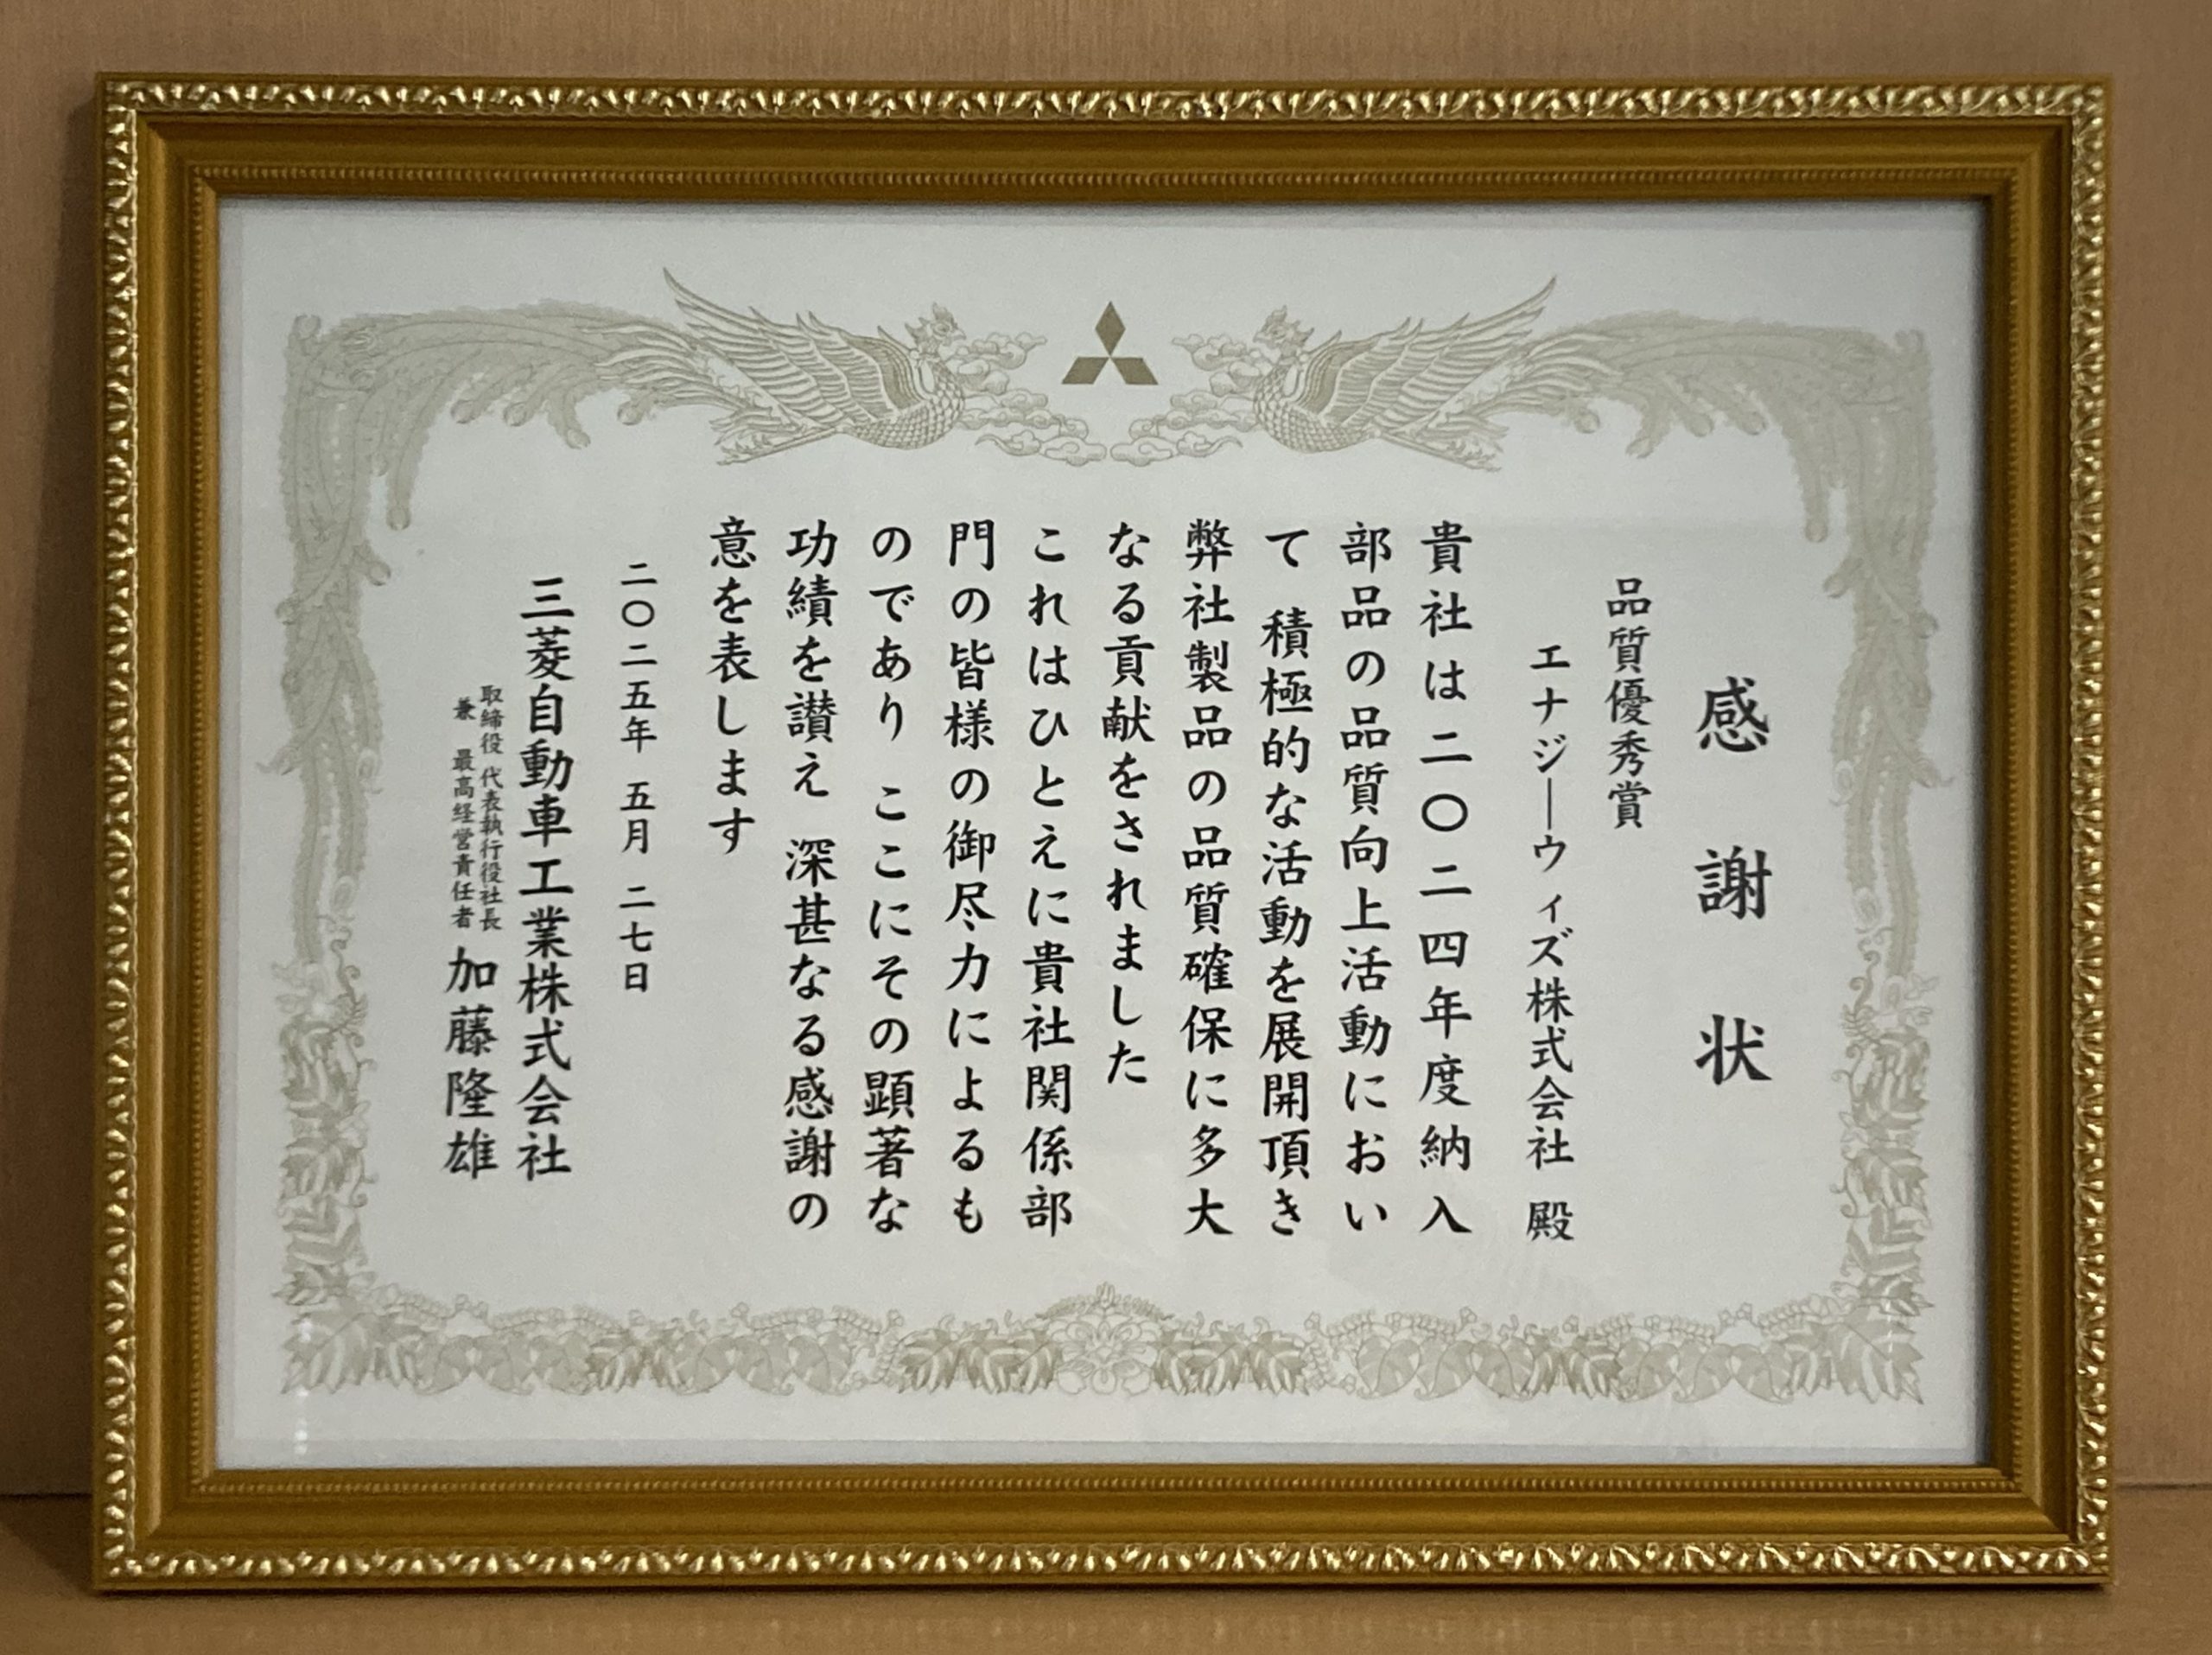 感謝状
品質優秀賞
エナジーウィズ株式会社 殿
貴社は二〇二四年度納入
部品の品質向上活動におい
て 積極的な活動を展開頂き
弊社製品の品質確保に多大
なる貢献をされました
これはひとえに貴社関係部
門の皆様の御尽力によるも
のであり ここにその顕著な
功績を讃え 深甚なる感謝の
意を表します
二〇二五年 五月 二七日
三菱自動車工業株式会社
取締役 代表執行役社長
兼 最高経営責任者
加藤隆雄